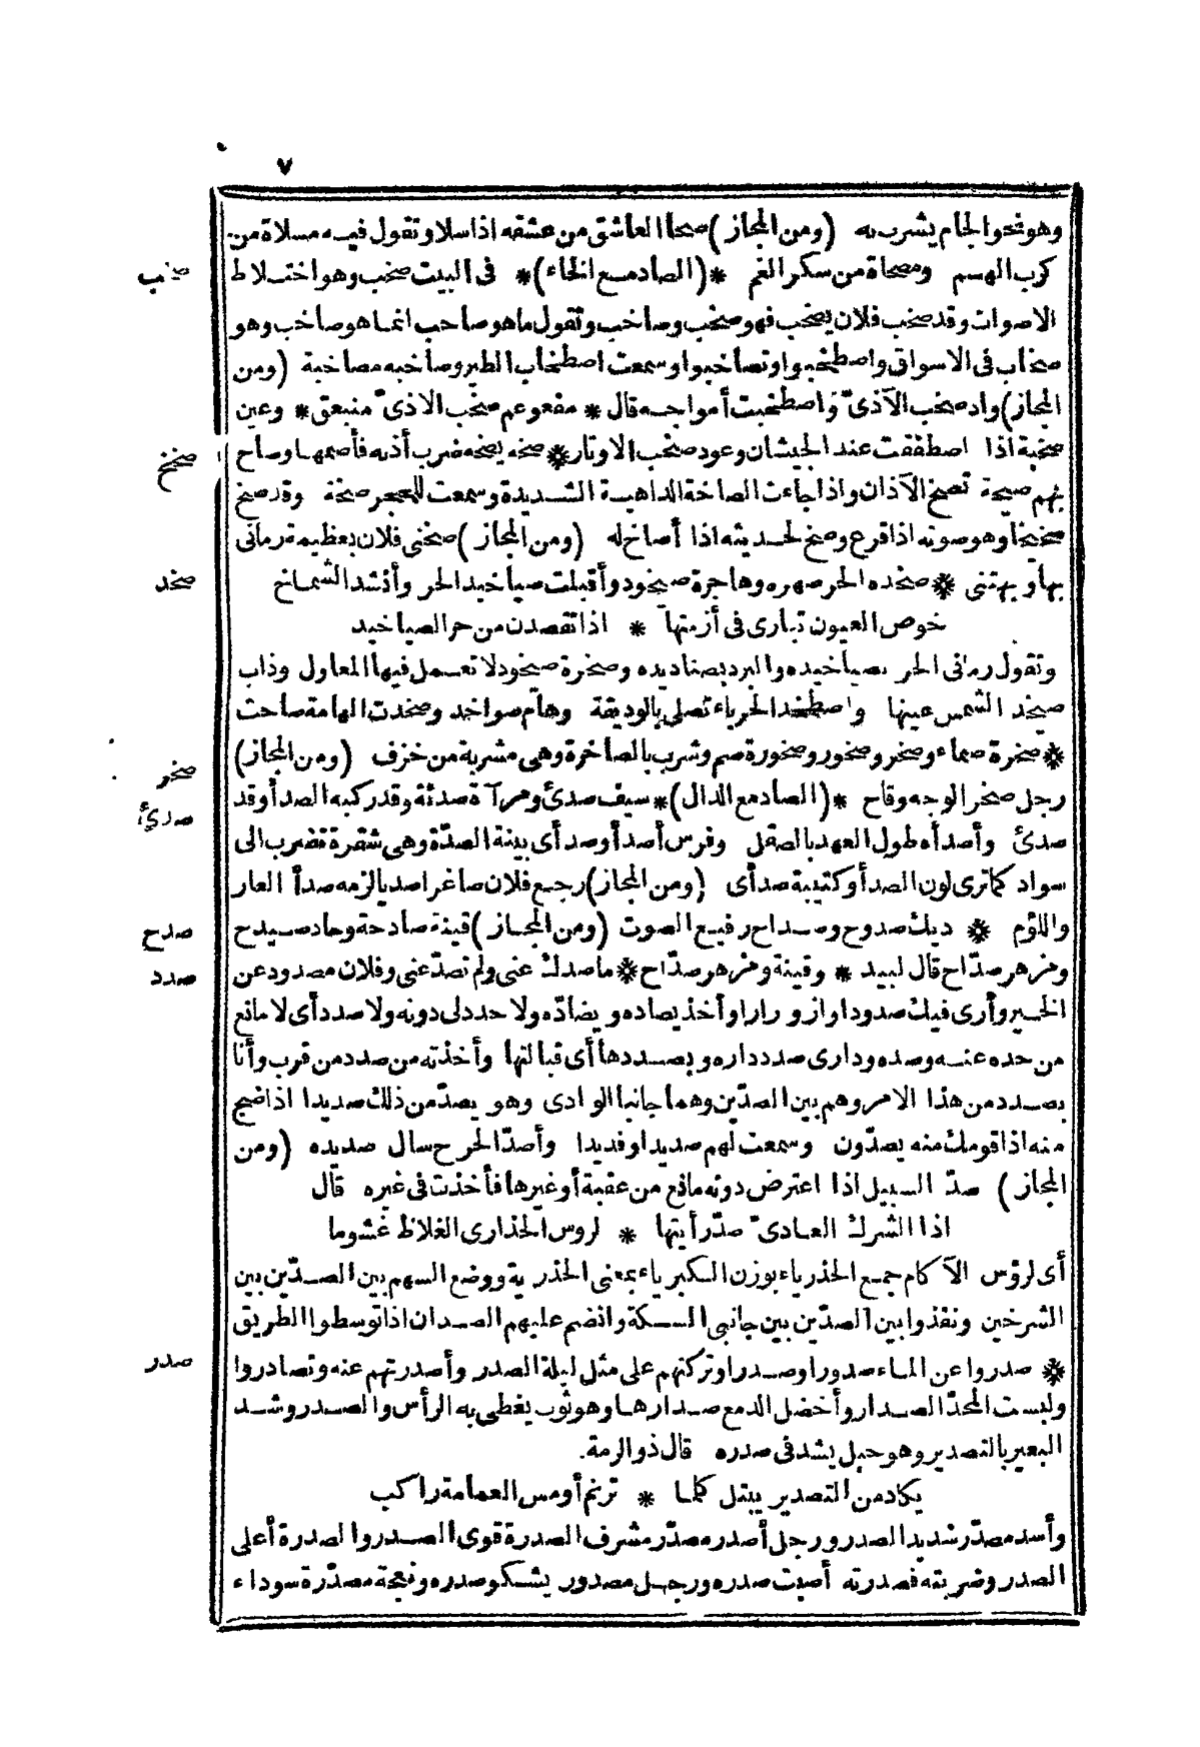 ٧
وهو نحو الجام يشرب به (ومن المجاز) صحا العاشق من عشقه اذا سلا وتقول فيه مسلاة من
كرب الهم ومصحاة من سكر الغم *(الصاد مع الخاء)* فى البيت صخب وهو اختلاط
صخب
الاصوات وقد صخب فلان يصخب فهو صخب وصاخب وتقول ما هو صاحب انما هو صاخب وهو
صخاب فى الاسواق واصطخبوا وتصاخبوا وسمعت اصطخاب الطير وصاخبه مصاخبة (ومن
المجاز) واد صخب الآذىّ واصطخبت أمواجه قال * مفعوعم صخب الاذىّ منبعق * وعين
صخبة اذا اصطفقت عند الجيشان وعود صخب الاوتار * صخه يصخه ضرب أذنه فأصمها وصاح
صخخ
بهم صيحة تصخ الآذان واذا جاءت الصاخة الداهية الشديدة وسمعت للحجر صخة وقد صخ
صخيخا وهو صوته اذا قرع وصخ لحديثه اذا أصاخ له (ومن المجاز) صخنى فلان بعظيمة رمانى
بها وبهتنى * صخده الحر صهره وهاجرة صيخود وأقبلت صياخيد الحر وأنشد الشماخ
صخد
خوص العيون تبارى فى أزمتها * اذا تقصدن من حر الصياخيد
وتقول رمانى الحر بصياخيده والبرد بصناديده وصخرة صيخود لا تعمل فيها المعاول وذاب
صيخد الشمس عينها واصطخد الحرباء تصلى بالوديقة وهام صواخد وصخدت الهامة صاحت
* صخرة صماء وصخر وصخور وصخورة صم وشرب بالصاخرة وهى مشربة من خزف (ومن المجاز)
صخر
رجل صخر الوجه وقاح *(الصاد مع الدال)* سيف صدئ ومرآة صدئة وقد ركبه الصدأ وقد
صدئ
صدئ وأصدأه طول العهد بالصقل وفرس أصدأ وصدأى بينة الصدّة وهى شقرة تضرب الى
سواد كما ترى لون الصدأ وكتيبة صدأى (ومن المجاز) رجع فلان صاغرا صديا لزمه صدأ العار
واللؤم * ديك صدوح وصداح رفيع الصوت (ومن المجاز) قينة صادحة وحاد صيدح
صدح
ومزهر صدّاح قال لبيد * وقينة ومزهر صدّاح * ما صدك عنى ولم تصدّ عنى وفلان مصدود عن
صدد
الخير وأرى فيك صدودا وازورارا وأخذ يصاده ويضادّه ولا حدد لى دونه ولا صدد أى لا مانع
من حده عنه وصده ودارى صدد داره وبصددها أى قبالتها وأخذته من صدد من قرب وأنا
بصدد من هذا الامر وهم بين الصدّين وهما جانبا الوادى وهو يصدّ من ذلك صديدا اذا ضج
منه اذا قومك منه يصدّون وسمعت لهم صديدا وفديدا وأصدّ الجرح سال صديده (ومن
المجاز) صدّ السبيل اذا اعترض دونه مانع من عقبة أو غيرها فأخذت فى غيره قال
اذا الشرك العادىّ صدّ رأيتها * لروس الحذارى الغلاظ غشوما
أى لرؤس الآكام جمع الحذرياء بوزن الكبرياء بمعنى الحذرية ووضع السهم بين الصدّين بين
الشرخين ونفذوا بين الصدّين بين جانبى السكة وانضم عليهم الصدان اذا توسطوا الطريق
* صدروا عن الماء صدورا وصدرا وتركتهم على مثل ليلة الصدر وأصدرتهم عنه وتصادروا
صدر
ولبست المحدّ الصدار وأخضل الدمع صدارها وهو ثوب يغطى به الرأس والصدر وشد
البعير بالتصدير وهو حبل يشد فى صدره قال ذو الرمة.
يكاد من التصدير ينتل كلما * ترنم أو مس العمامة راكب
وأسد مصدّر شديد الصدر ورجل أصدر مصدّر مشرف الصدرة قوى الصدر والصدرة أعلى
الصدر وضربته فصدرته أصبت صدره ورجل مصدور يشكو صدره ونعجة مصدّرة سوداء